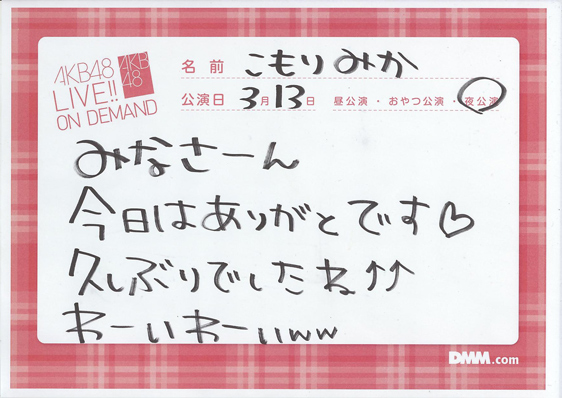 AKB48
LIVE!!
ON DEMAND
AKB
48
名前 こもりみか
公演日 3月13日 昼公演・おやつ公演・夜公演
みなさーん
今日はありがとです♡
久しぶりでしたね↑↑
わーいわーいww
DMM.com